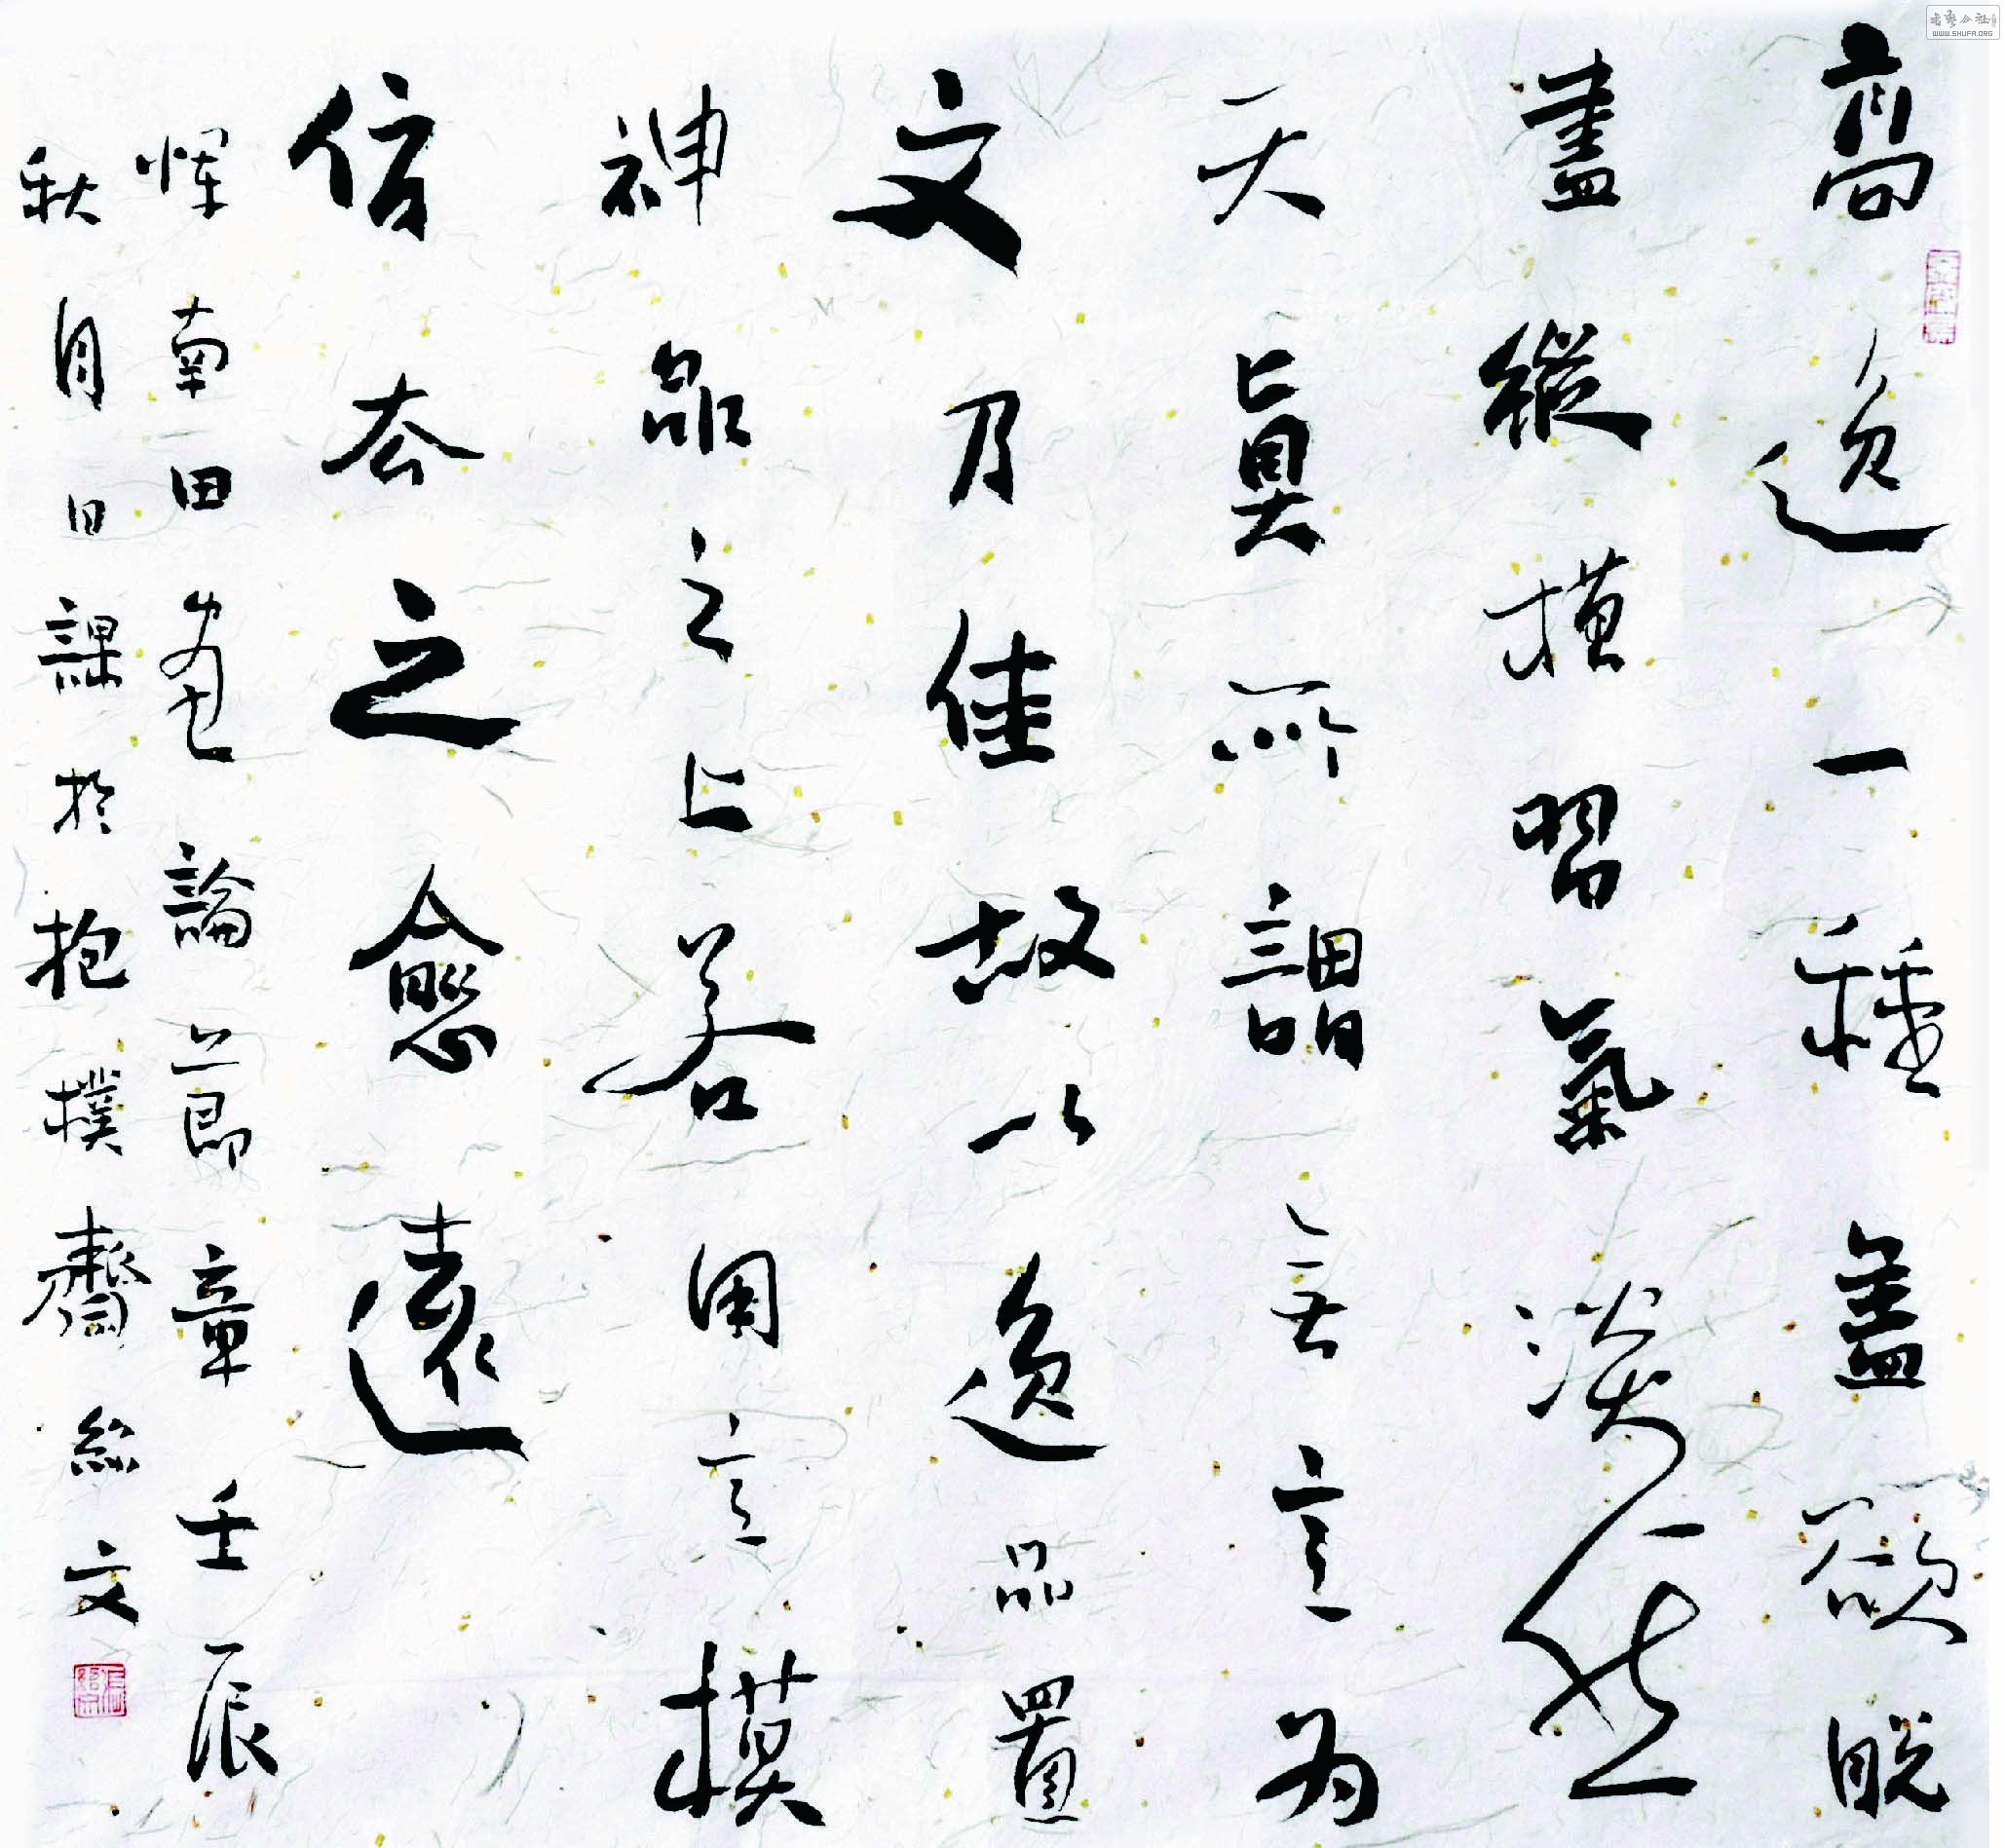 高逸一種蓋欲脫
盡縱橫習氣淡然
天真所謂無意為
文乃佳故以逸品置
神品之上若用意模
倣去之愈遠
惲南田畫論一節章壬辰
秋月日課於抱樸齋紹文
WWW.SHUFA.ORG